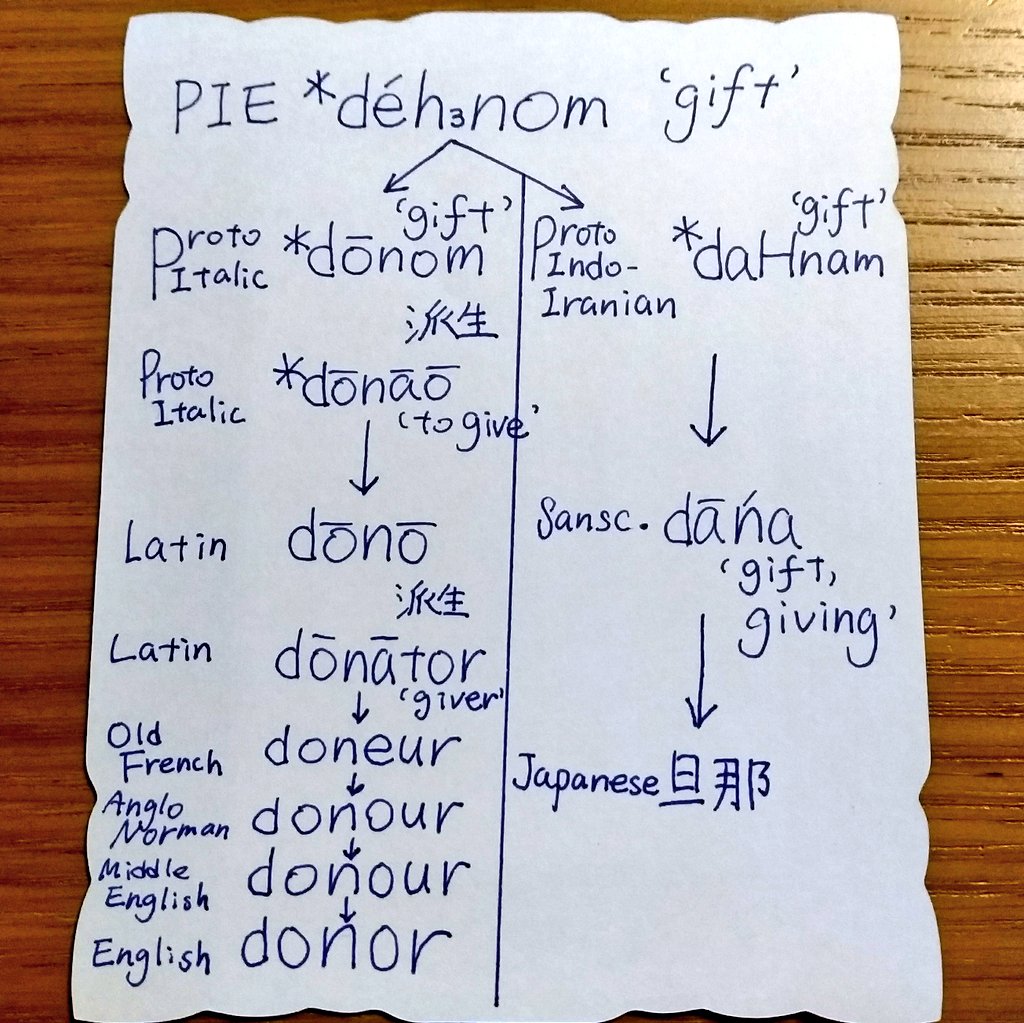 PIE *déh₃nom 'gift'
'gift'
Proto Italic *dōnom
派生
Proto Italic *dōnāō
'to give'
Latin dōnō
派生
Latin dōnātor
'giver'
Old French doneur
Anglo Norman donour
Middle English donour
English donor
'gift'
Proto Indo-Iranian *daHnam
Sansc. dāńa
'gift,
giving'
Japanese 旦那